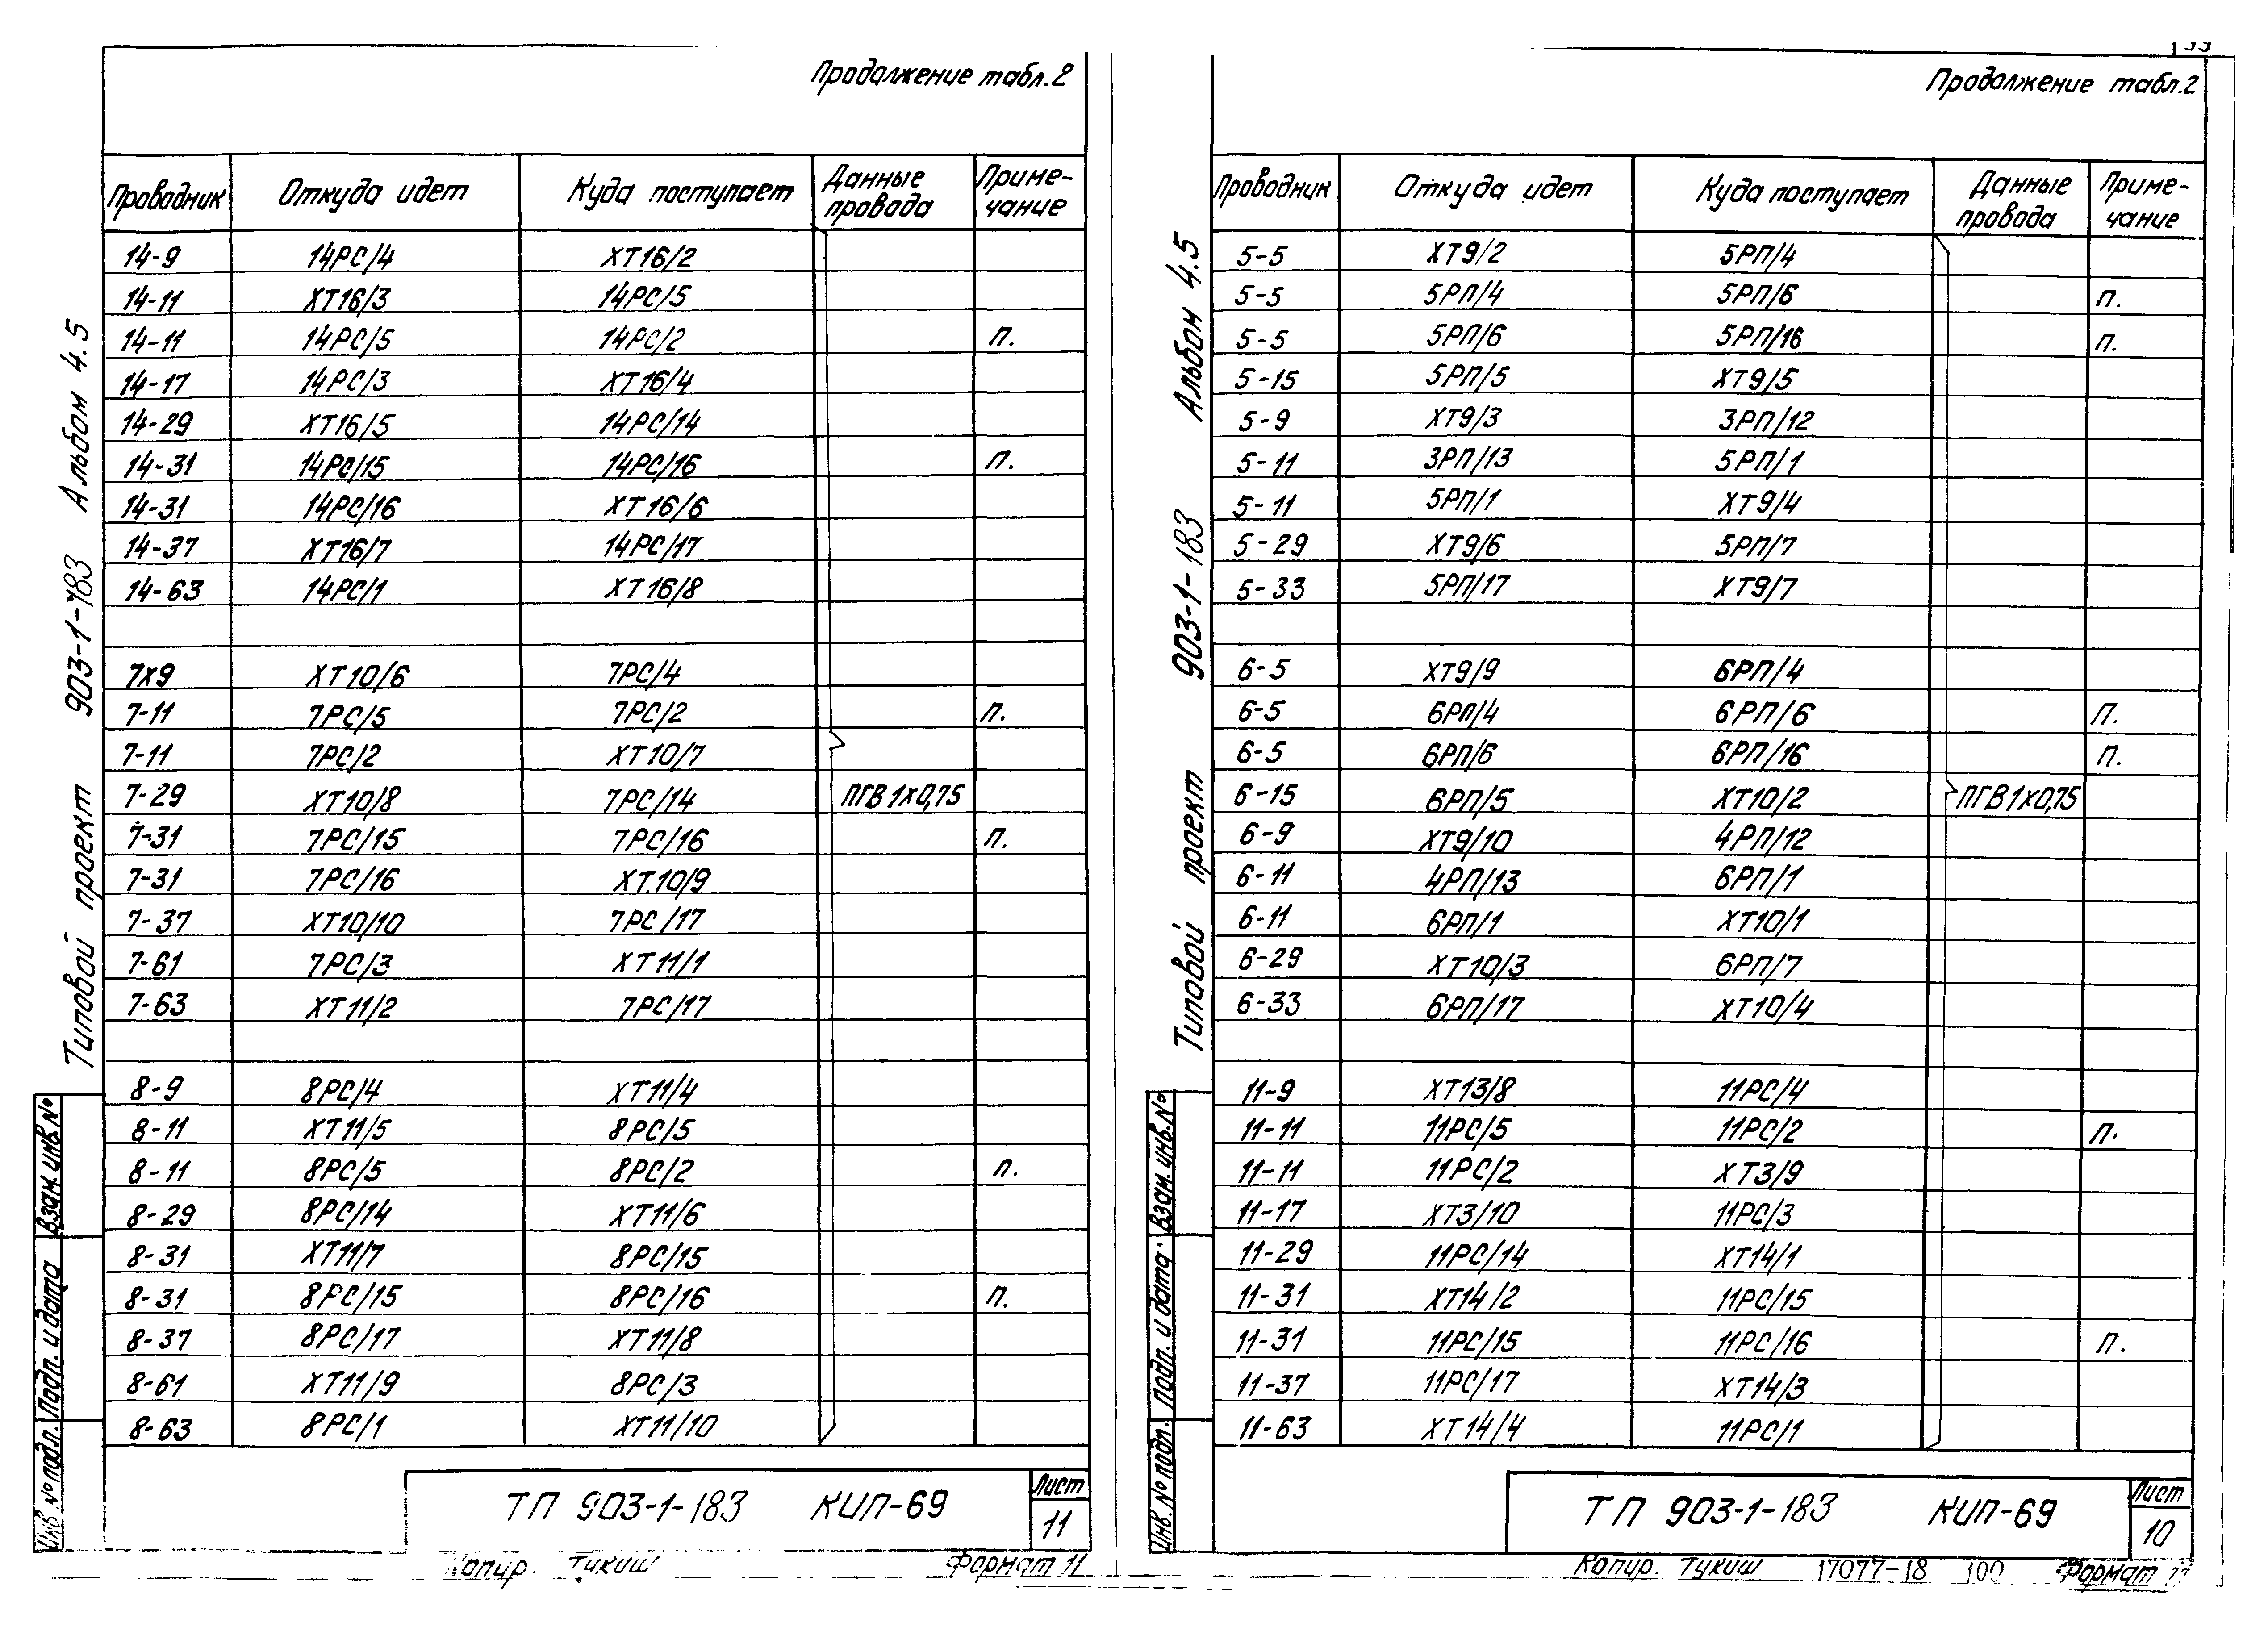 Продолжение табл.2
Проводник Откуда идет Куда поступает Данные провода Приме-чание
14-9 14РС/4 ХТ16/2
14-11 ХТ16/3 14РС/5
14-11 14РС/5 14РС/2 п.
14-17 14РС/3 ХТ16/4
14-29 ХТ16/5 14РС/14
14-31 14РС/15 14РС/16 п.
14-31 14РС/16 ХТ16/6
14-37 ХТ16/7 14РС/17
14-63 14РС/1 ХТ16/8
7х9 ХТ10/6 7РС/4
7-11 7РС/5 7РС/2 п.
7-11 7РС/2 ХТ10/7
7-29 ХТ10/8 7РС/14 ПГВ1х0,75
7-31 7РС/15 7РС/16 п.
7-31 7РС/16 ХТ.10/9
7-37 ХТ10/10 7РС/17
7-61 7РС/3 ХТ11/1
7-63 ХТ11/2 7РС/17
8-9 8РС/4 ХТ11/4
8-11 ХТ11/5 8РС/5
8-11 8РС/5 8РС/2 п.
8-29 8РС/14 ХТ11/6
8-31 ХТ11/7 8РС/15
8-31 8РС/15 8РС/16 п.
8-37 8РС/17 ХТ11/8
8-61 ХТ11/9 8РС/3
8-63 8РС/1 ХТ11/10
Типовой проект 903-1-183 Альбом 4.5
Инв.№подл. Подп. и дата Взам.инв.№
ТП 903-1-183 КИП-69
Лист
11
Копир. Тукиш Формат 11
Продолжение табл.2
Проводник Откуда идет Куда поступает Данные провода Приме-чание
5-5 ХТ9/2 5РП/4
5-5 5РП/4 5РП/6 п.
5-5 5РП/6 5РП/16 п.
5-15 5РП/5 ХТ9/5
5-9 ХТ9/3 3РП/12
5-11 3РП/13 5РП/1
5-11 5РП/1 ХТ9/4
5-29 ХТ9/6 5РП/7
5-33 5РП/17 ХТ9/7
6-5 ХТ9/9 6РП/4
6-5 6РП/4 6РП/6 П.
6-5 6РП/6 6РП/16 п.
6-15 6РП/5 ХТ10/2 ПГВ1х0,75
6-9 ХТ9/10 4РП/12
6-11 4РП/13 6РП/1
6-11 6РП/1 ХТ10/1
6-29 ХТ10/3 6РП/7
6-33 6РП/17 ХТ10/4
11-9 ХТ13/8 11РС/4
11-11 11РС/5 11РС/2 п.
11-11 11РС/2 ХТ3/9
11-17 ХТ3/10 11РС/3
11-29 11РС/14 ХТ14/1
11-31 ХТ14/2 11РС/15
11-31 11РС/15 11РС/16 п.
11-37 11РС/17 ХТ14/3
11-63 ХТ14/4 11РС/1
Типовой проект 903-1-183 Альбом 4.5
Инв.№подл. Подп. и дата Взам.инв.№
ТП 903-1-183 КИП-69
Лист
10
Копир. Тукиш 17077-18 100 Формат